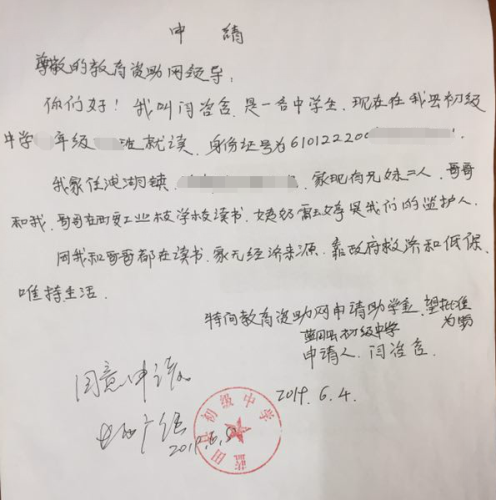 申 请
尊敬的教育资助网领导：
你们好！我叫闫咨含，是一名中学生，现在在我县初级
中学 年级 班就读，身份证号为610122200
我家住 湖镇， 家现有兄妹二人，哥哥
和我，哥哥在 工业技学校读书， 是我们的监护人，
因我和哥哥都在读书，家无经济来源，靠政府救济和低保
唯持生活。
特向教育资助网申请助学金，望批准
为盼
蓝田县初级中学
申请人：闫咨含
2019.6.4.
同意申请
2019.6.
蓝田 初级中学